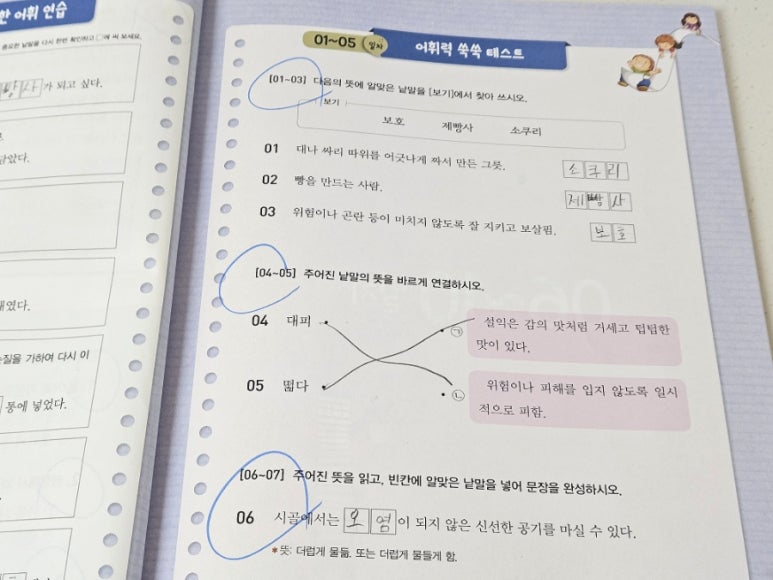 한 어휘 연습
중요한 낱말을 다시 한번 확인하고 □에 써 보세요.
빵사가 되고 싶다.
담았다.
대였다.
손질을 가하여 다시 이
통에 넣었다.
01~05 일차
어휘력 쑥쑥 테스트
[01~03] 다음의 뜻에 알맞은 낱말을 [보기]에서 찾아 쓰시오.
보기
보호 제빵사 소쿠리
01 대나 싸리 따위를 어긋나게 짜서 만든 그릇. 소쿠리
02 빵을 만드는 사람. 제빵사
03 위험이나 곤란 등이 미치지 않도록 잘 지키고 보살핌. 보호
[04~05] 주어진 낱말의 뜻을 바르게 연결하시오.
04 대피
㉠ 설익은 감의 맛처럼 거세고 텁텁한
맛이 있다.
05 떫다
㉡ 위험이나 피해를 입지 않도록 일시
적으로 피함.
[06~07] 주어진 뜻을 읽고, 빈칸에 알맞은 낱말을 넣어 문장을 완성하시오.
06 시골에서는 오염이 되지 않은 신선한 공기를 마실 수 있다.
*뜻: 더럽게 물듦. 또는 더럽게 물들게 함.